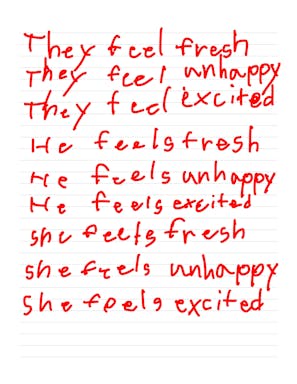 They feel fresh
They feel unhappy
They feel excited
He feels fresh
He feels unhappy
He feels excited
she feels fresh
she feels unhappy
She feels excited